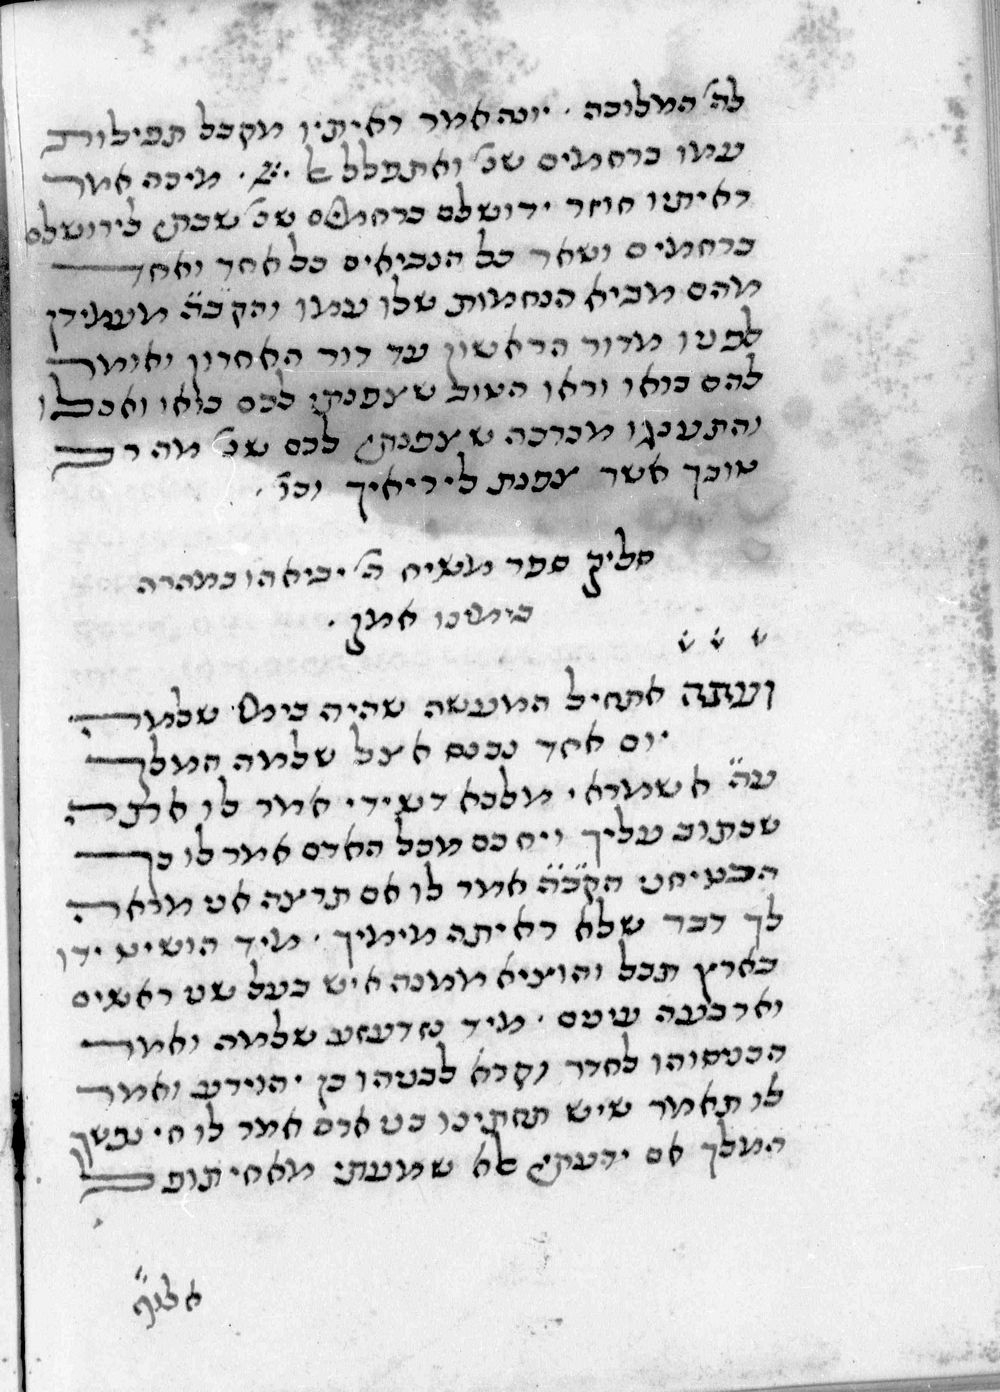 לה' המלוכה · יונה אמר ראיתיו מקבל תפילות
עמו ברחמים שנ' ואתפלל ל · מיכה אמר
ראיתיו חוזר ירושלם ברחמים שנ' שבתי לירושלם
ברחמים ושאר כל הנביאים כל אחד ואחד
מהם מביא הנחמות שלו עמו והקב"ה מעמידן
לפניו מדור הראשון עד דור האחרון ואומר
להם בואו וראו הטוב שצפנתי לכם בואו ואכלו
והתענגו מברכה שצפנתי לכם שנ' מה רב
טובך אשר צפנת ליריאיך וכו' ·
סליק ספר משיח ה' יביאהו במהרה
בימינו אמן ·
ועתה אתחיל המעשה שהיה בימי שלמה
יום אחד נכנס אצל שלמה המלך
ע"ה אשמדאי מלכא דשידי אמר לו אתה
שכתוב עליך ויחכם מכל האדם אמר לו כך
הבטיחני הקב"ה אמר לו אם תרצה אני מראה
לך דבר שלא ראיתה מימיך · מיד הושיט ידו
בארץ תבל והוציא ממנה איש בעל שני ראשים
וארבעה עינים · מיד נזדעזע שלמה ואמר
הכניסוהו לחדר וקרא לבניהו בן יהוידע ואמר
לו תאמר שיש תחתינו בני אדם אמר לו חי נפשך
המלך אם ידעתי לא שמעתי מאחיתופל